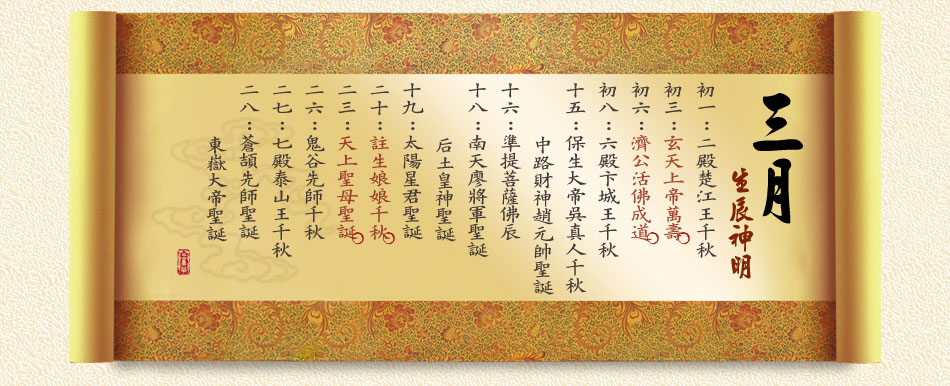 三月
生辰神明
初一：二殿楚江王千秋
初三：玄天上帝萬壽
初六：濟公活佛成道
初八：六殿卞城王千秋
十五：保生大帝吳真人千秋
中路財神趙元帥聖誕
十六：準提菩薩佛辰
十八：南天廖將軍聖誕
后土皇神聖誕
十九：太陽星君聖誕
二十：註生娘娘千秋
二三：天上聖母聖誕
二六：鬼谷先師千秋
二七：七殿泰山王千秋
二八：蒼頡先師聖誕
東嶽大帝聖誕